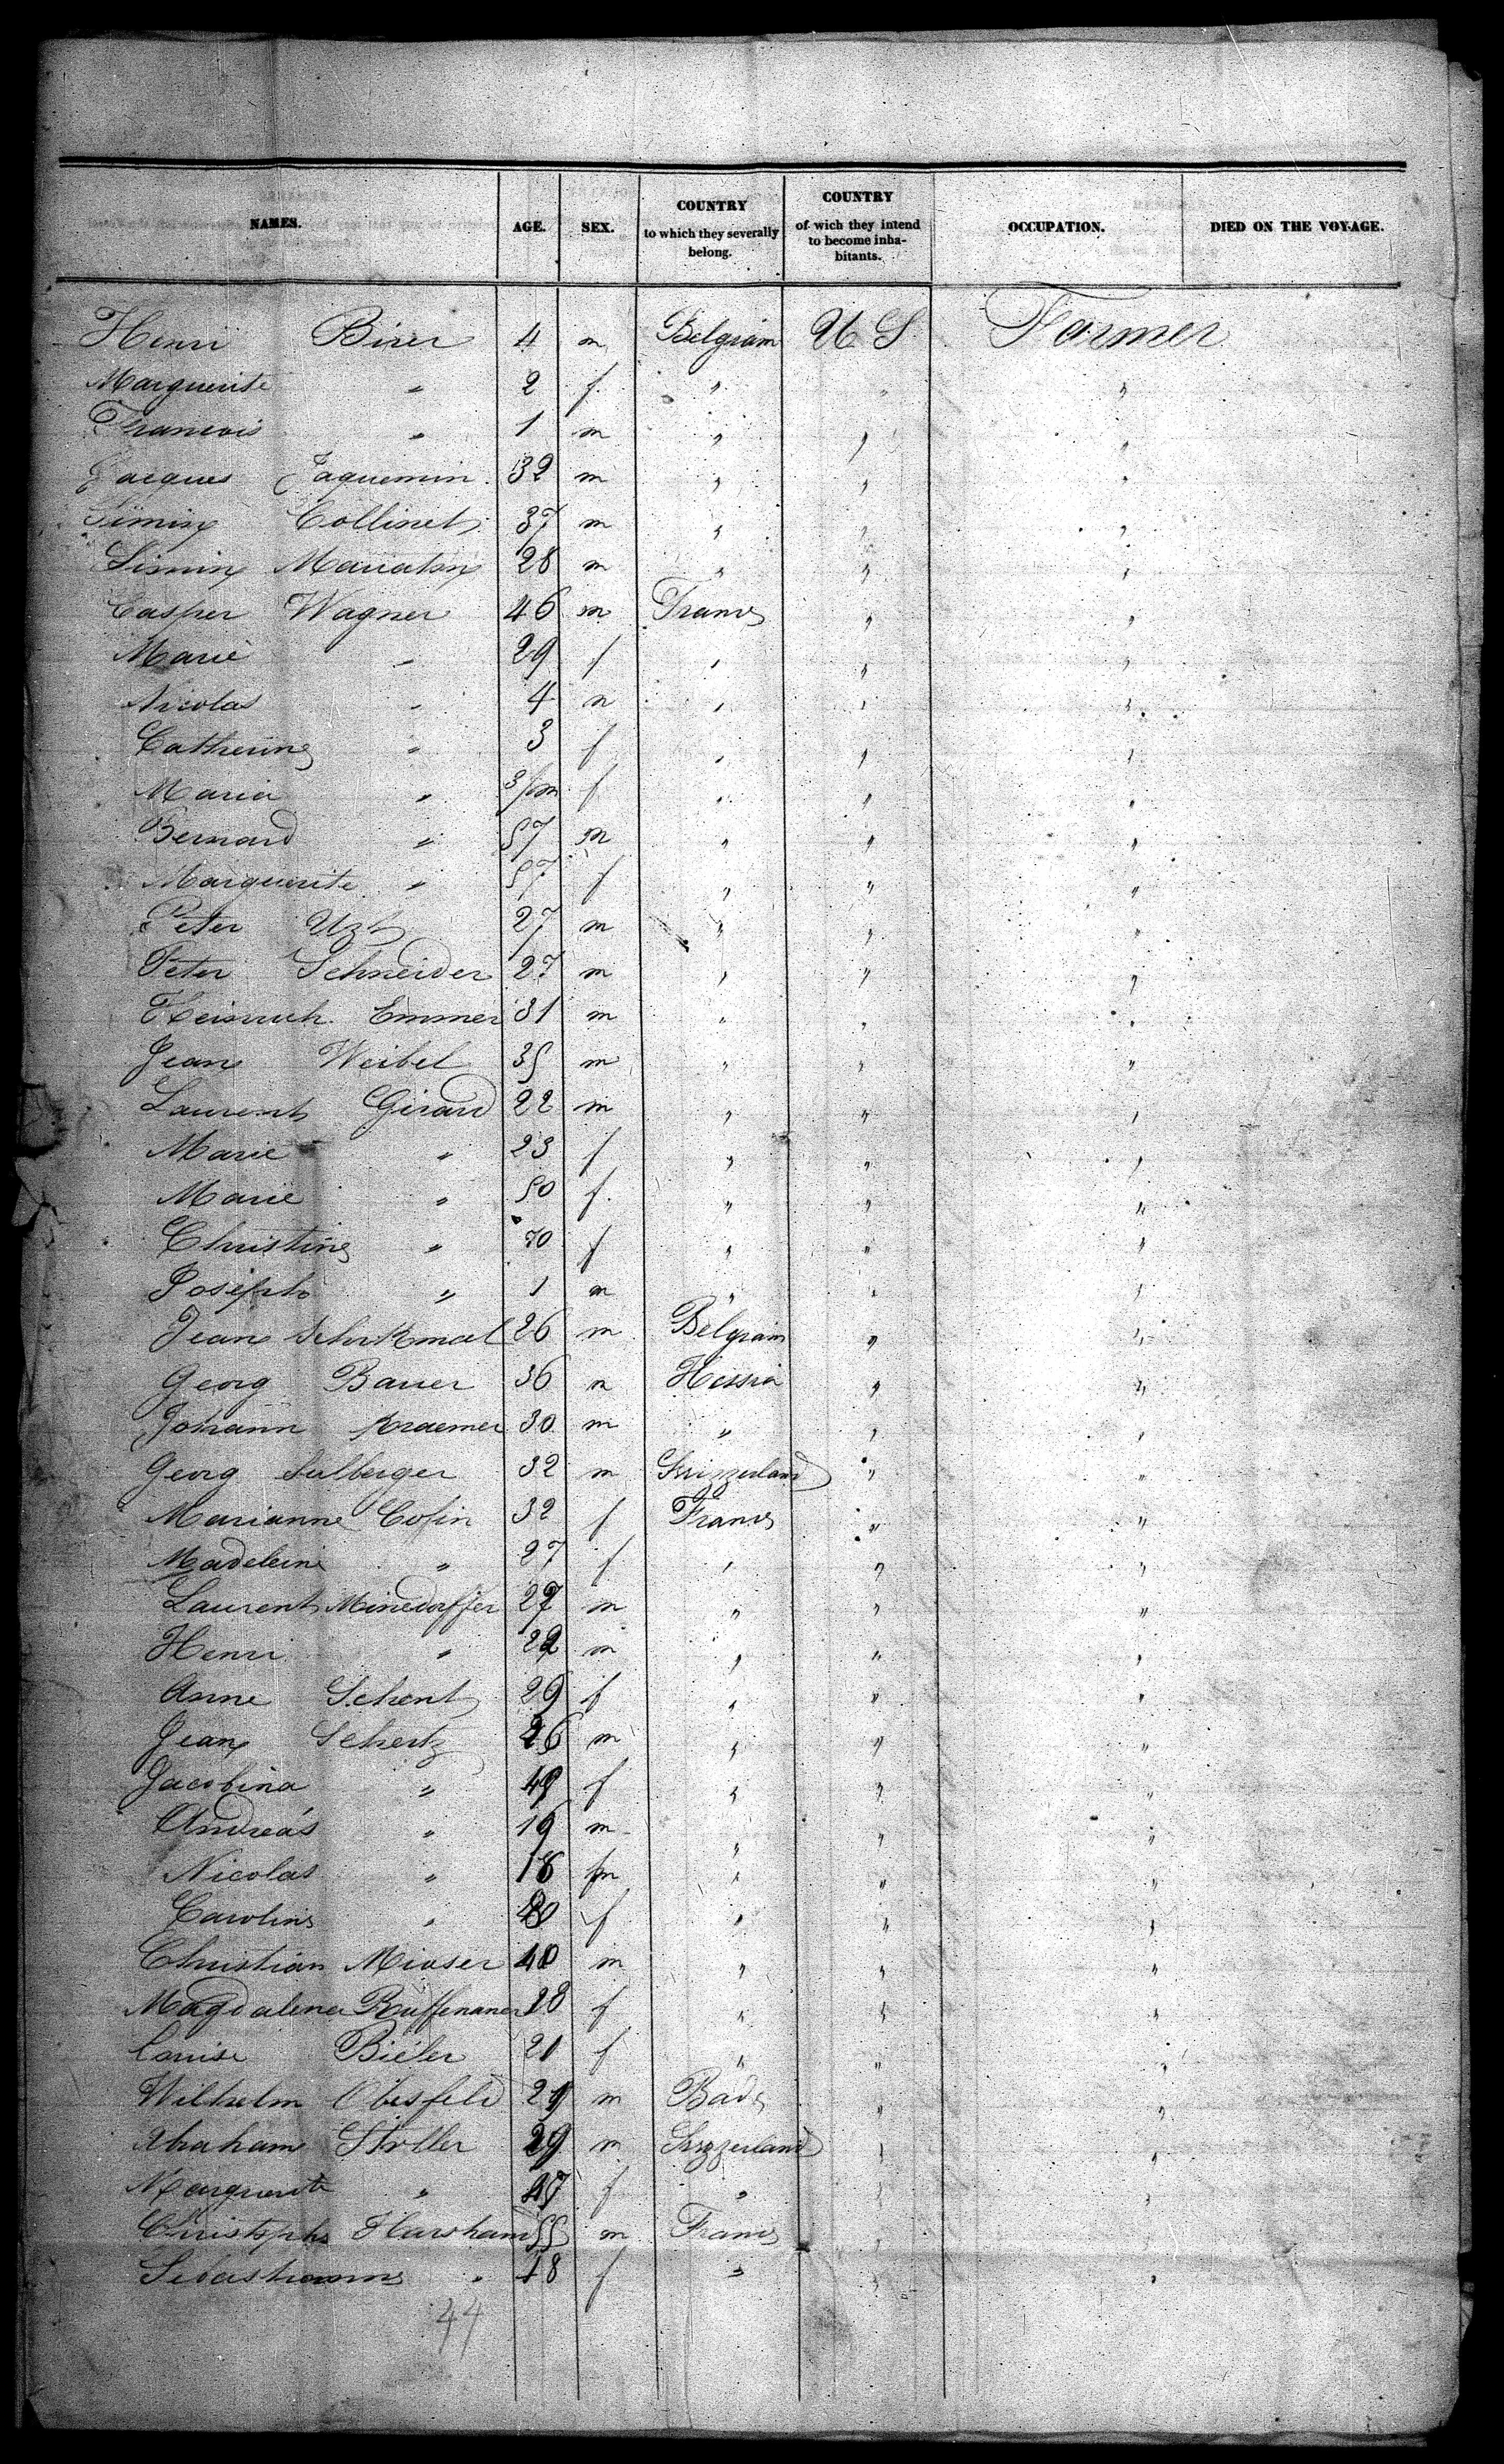 NAMES. AGE. SEX. COUNTRY to which they severally belong. COUNTRY of wich they intend to become inhabitants. OCCUPATION. DIED ON THE VOYAGE.
Henri Birer 4 m Belgiam U S Farmer
Marguerite " 2 f " " "
Francois " 1 m " " "
Jacques Jaquemin 32 m " " "
Simin Collinet 37 m " " "
Simin 28 m " " "
Casper Wagner 46 m France " "
Marie " 29 f " " "
Nicolas " 4 m " " "
Catherine " 3 f " " "
Maria " f " " "
Bernard " 57 m " " "
Marguerite " 57 f " " "
Peter Uzt 27 m " " "
Peter Schneider 27 m " " "
Heinrich Emmer 31 m " " "
Jean Weibel 35 m " " "
Laurent Girard 22 m " " "
Marie " 23 f " " "
Marie " 50 f " " "
Christine " f " " "
Joseph " 1 m " " "
Jean 26 m Belgiam " "
Georg Bauer 36 m Hessia " "
Johann Kraemer 30 m " " "
Georg Sulberger 32 m Swizzerland " "
Marianne Cofin 32 f France " "
Madeleine " 27 f " " "
Laurent Minedorffer 27 m " " "
Henri " 22 m " " "
Anne Schent 29 f " " "
Jean Schertz 26 m " " "
Jacobina " f " " "
Andreas " 19 m " " "
Nicolas " 18 m " " "
Caroline " f " " "
Christian Mioser 40 m " " "
Magdalena Ruffenaner 28 f " " "
Louise Bieler 21 f " " "
Wilhelm Obesfeld m Bade " "
Abraham Stoller 29 m Swizzerland " "
Marguerite " f " " "
Christophe Harsham 55 m France " "
Sebastianne " 18 f " " "
44